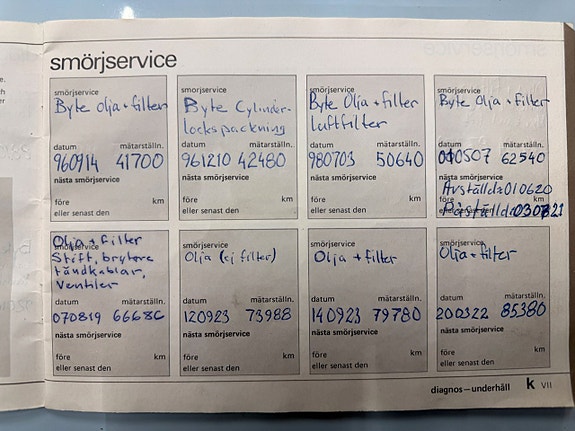 smörjservice
smörjservice
Byte olja + filter
datum mätarställn.
960914 41700
nästa smörjservice
före km
eller senast den
smörjservice
Byte Cylinder-
lockspackning
datum mätarställn.
961210 42480
nästa smörjservice
före km
eller senast den
smörjservice
Byte Olja + filter
luftfilter
datum mätarställn.
980703 50640
nästa smörjservice
före km
eller senast den
smörjservice
Byte Olja + filter
datum mätarställn.
010507 62540
nästa smörjservice
Avställd: 010620
Påställd: 030821
före km
eller senast den
Olja + filter
smörjservice
Stift, brytare
tändkablar,
Ventiler
datum mätarställn.
070819 66686
nästa smörjservice
före km
eller senast den
smörjservice
Olja (ej filter)
datum mätarställn.
120923 73988
nästa smörjservice
före km
eller senast den
smörjservice
Olja + filter
datum mätarställn.
140923 79780
nästa smörjservice
före km
eller senast den
smörjservice
Olja + filter
datum mätarställn.
200322 85380
nästa smörjservice
före km
eller senast den
diagnos–underhåll k VII